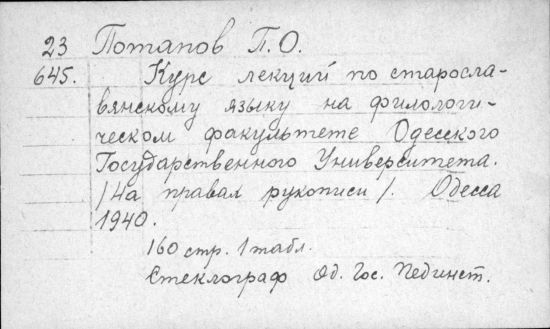 23 Потапов П.О.
645. Курс лекций по старосла-
вянскому языку на филологи-
ческом факультете Одесского
Государственного Университета.
/На правах рукописи/. Одесса
1940.
160 стр. 1 табл.
Стеклограф Од. Гос. Пединст.